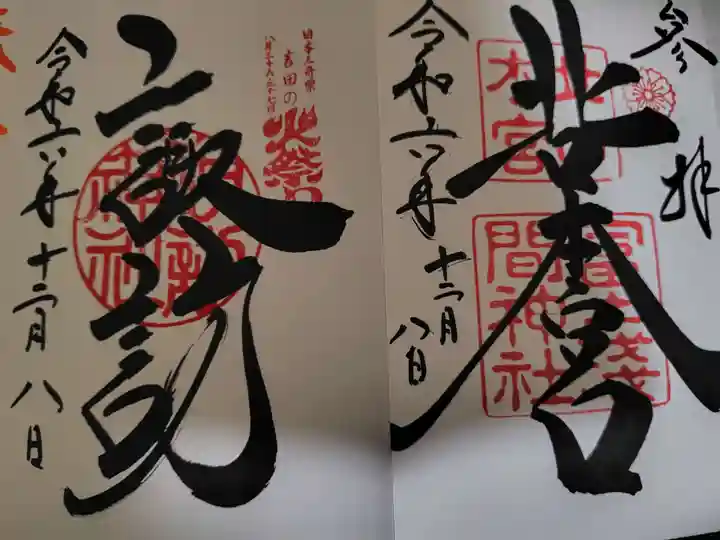 參拝
北口本宮
冨士淺
間神社
令和六年十二月
八日
日本三奇祭
吉田の
火祭り
八月二十六・二十七日
諏訪
諏訪
神社
令和六年十二月八日